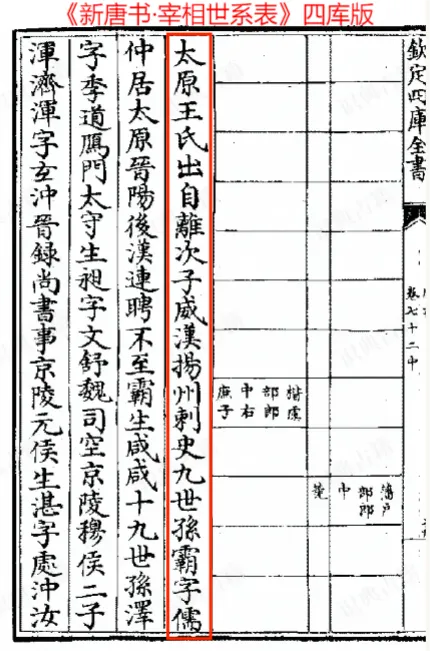 《新唐书·宰相世系表》四库版
欽定四庫全書
卷七十二中
潘户
部郎
郎
中
楷虞
部郎
中右
庶子
太原王氏出自離次子威漢揚州刺史九世孫霸字儒
仲居太原晉陽後漢連聘不至霸生咸咸十九世孫澤
字季道鴈門太守生昶字文舒魏司空京陵穆侯二子
渾濟渾字玄沖晉録尚書事京陵元侯生湛字處沖汝